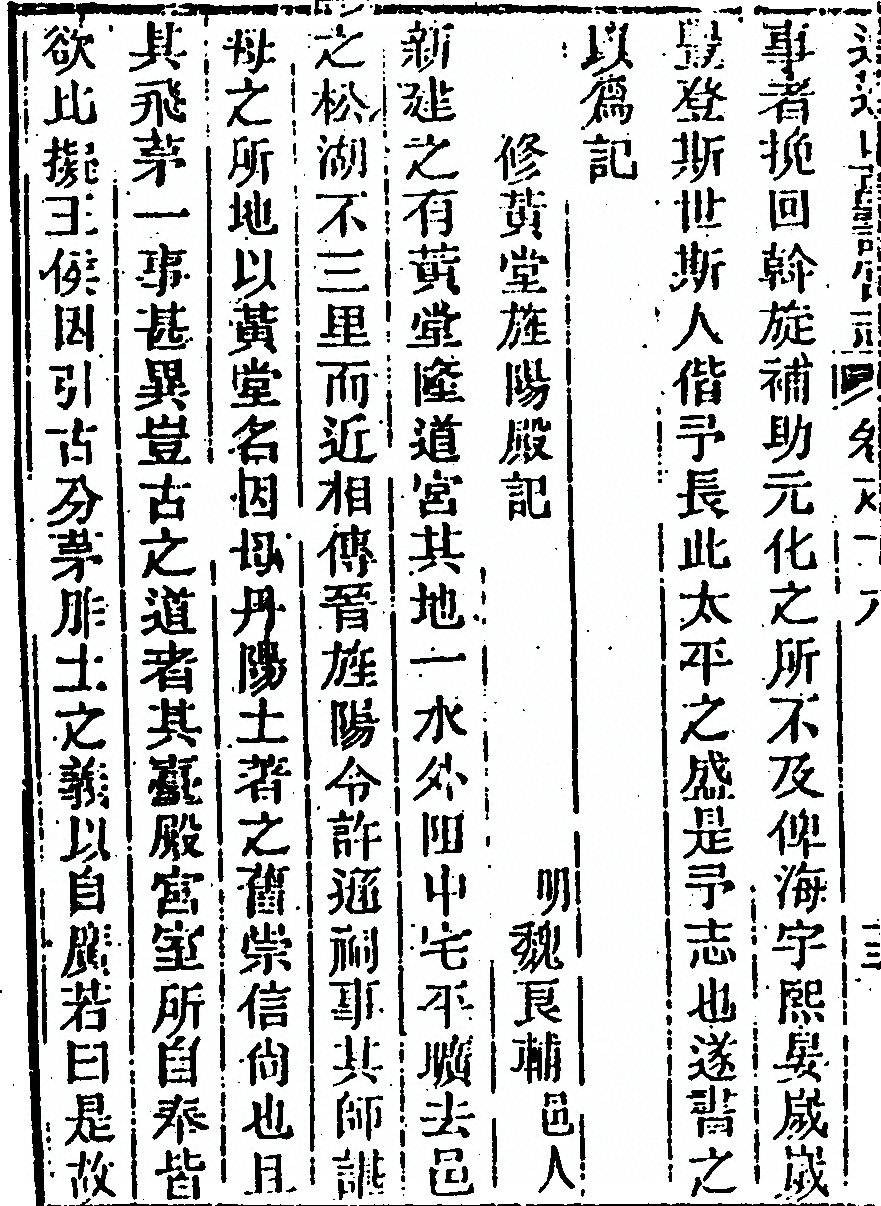 事者挽回斡旋補助元化之所不及俾海宇熙晏嵗嵗
豐登斯世斯人偕予長此太平之盛是予志也遂書之
以爲記
修黃堂旌陽殿記 明魏良輔邑人
新建之有黃堂隆道宮其地一水外阻中宅平曠去邑
之松湖不三里而近相傳晉旌陽令許遜祠事其師諶
母之所地以黃堂名因母丹陽土著之舊崇信尚也且
其飛茅一事甚異豈古之道者其臺殿宮室所自奉皆
欲比擬王侯因引古分茅胙土之義以自廣若曰是故